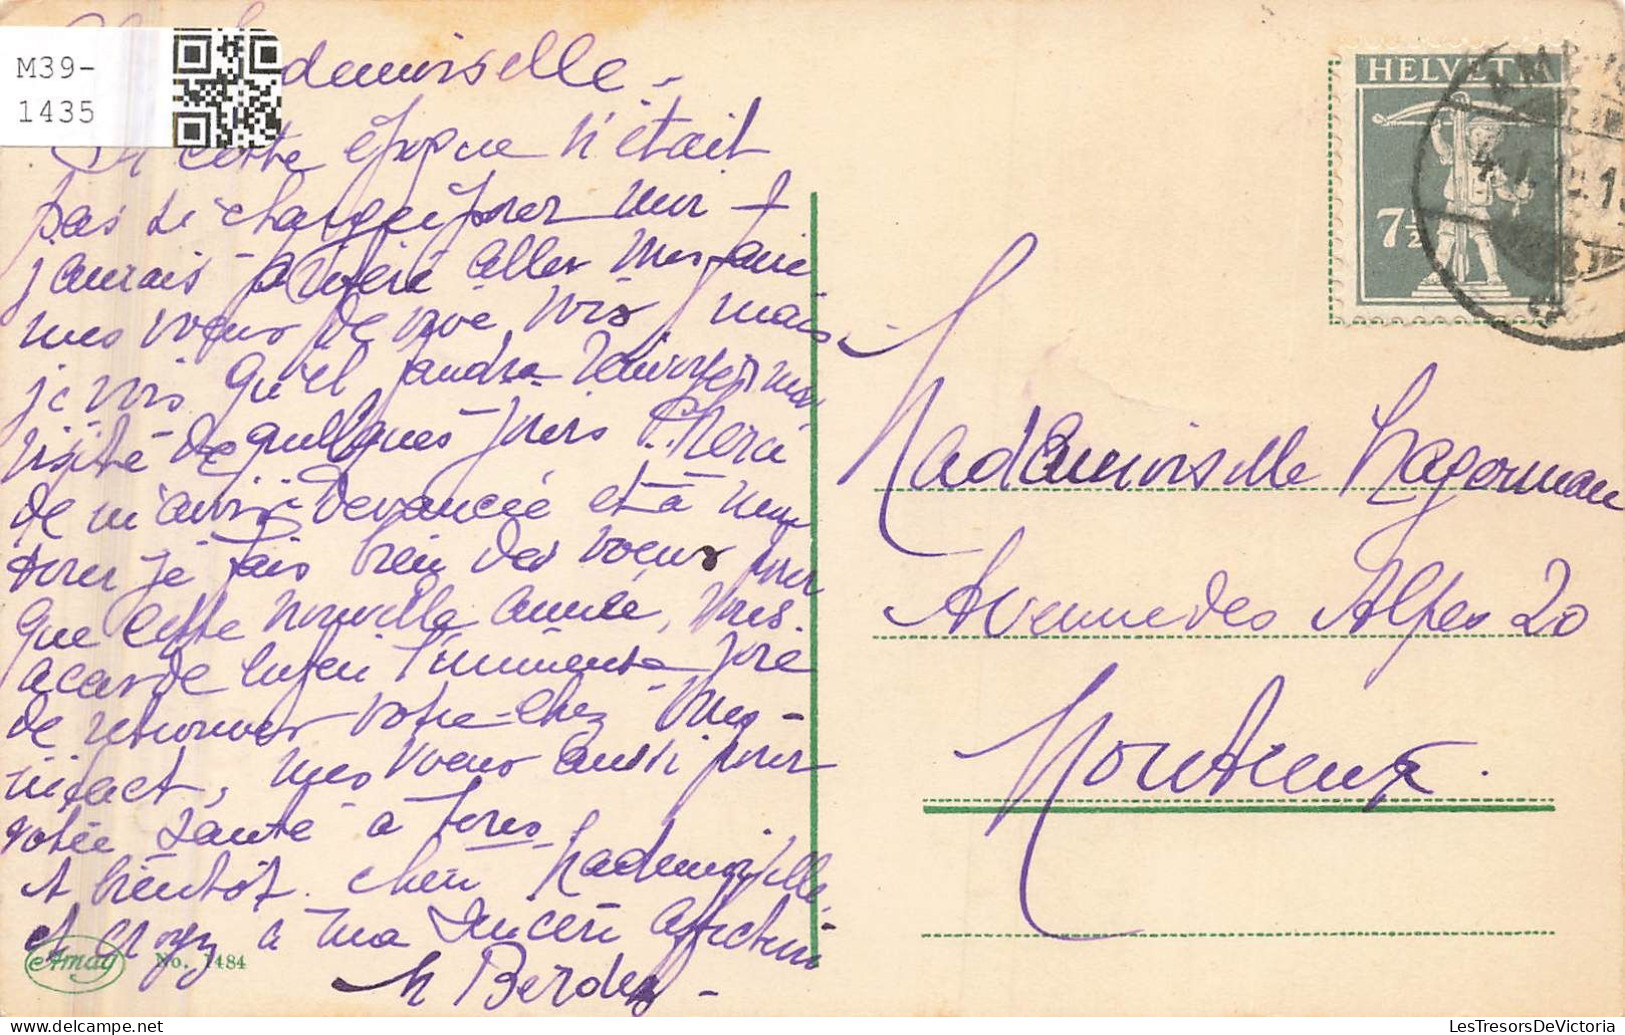 M39-
1435
demoiselle -
cette époque n'était
pas si chargée pour moi
j'aurais préféré aller
mes voeux de vive voix, mais
je vois qu'il faudra renvoyer ma
visite de quelques jours. Merci
de m'avoir devancée et à mon
tour je fais bien des voeux pour
que cette nouvelle année, vous
accorde la joie
de retrouver votre chez vous
intact, mes voeux aussi pour
votre santé à tous
A bientôt chère Mademoiselle,
et croyez à ma sincère affection
Berdez -
Amag No. 1484
HELVETIA
7½
Mademoiselle Hagerman
Avenue des Alpes 20
Montreux.
LesTresorsDeVictoria
www.delcampe.net